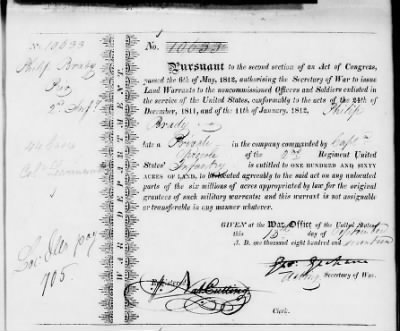 No 10633
Philip Brady
2d Inft
No. 10633
Pursuant to the second section of an Act of Congress,
passed the 6th of May, 1812, authorising the Secretary of War to issue
Land Warrants to the noncommissioned Officers and Soldiers enlisted
in the service of the United States, conformably to the acts of the 24th of
December, 1811, and of the 11th of January, 1812, Philip
Brady
late a Private in the company commanded by Captn
of the 2nd Regiment United
States' Infantry is entitled to ONE HUNDRED AND SIXTY
ACRES OF LAND, to be located agreeably to the said act on any unlocated
parts of the six millions of acres appropriated by law for the original
grantees of such military warrants; and this warrant is not assignable
or transferable in any manner whatever.
WAR DEPARTMENT.
GIVEN at the War Office of the United States
this 15th day of September
A. D. one thousand eight hundred and seventeen
Geo: Graham
Acting Secretary of War.
Nat Cutting
Clerk.
705